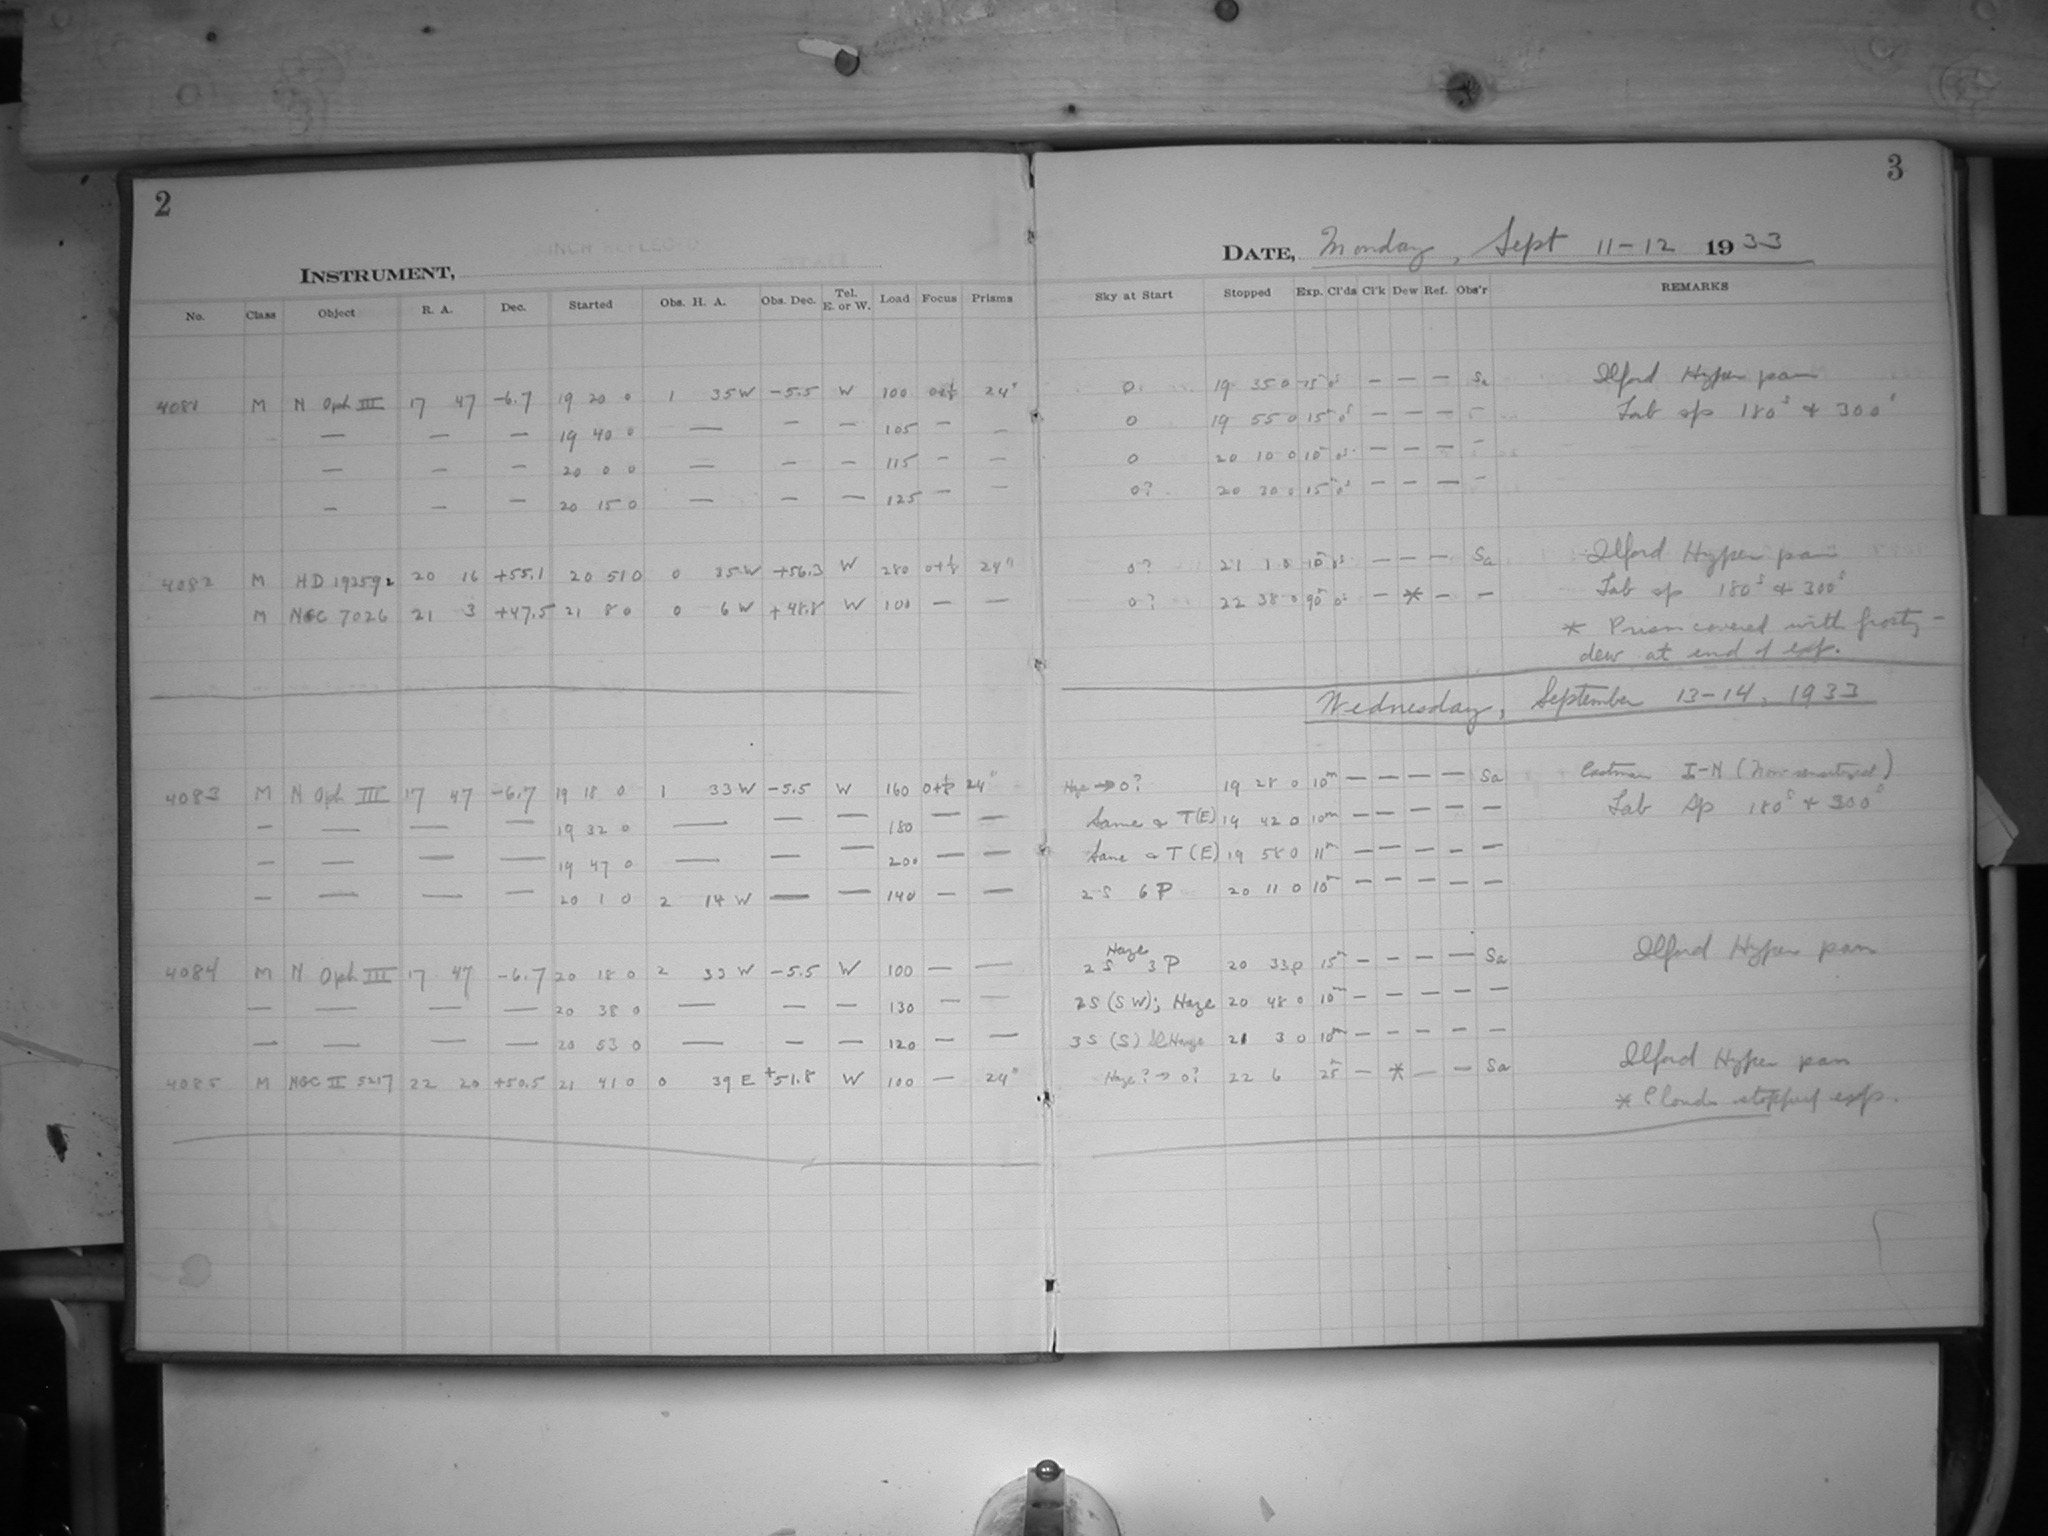 2
3
INSTRUMENT,
DATE, Monday, Sept 11-12 1933
No. Class Object R. A. Dec. Started Obs. H. A. Obs. Dec. Tel. E. or W. Load Focus Prisms Sky at Start Stopped Exp. Cl'ds Cl'k Dew Ref. Obs'r REMARKS
4081 M N Oph III 17 47 -6.7 19 20 0 1 35 W -5.5 W 100 24" 0 19 35 0 15 Sa Ilford Hyper pan
— — — 19 40 0 — — — 105 — — 0 19 55 0 15 — — — Lab sp 180s & 300s
— — — 20 0 0 — — — 115 — — 0 20 10 0 10 — — — —
— — — 20 15 0 — — — 125 — — 0? 20 30 0 15 — — — —
4082 M HD 192592 20 16 +55.1 20 51 0 0 35 W +56.3 W 280 24" 0? 21 1 0 10 — — — Sa Ilford Hyper pan
M NGC 7026 21 3 +47.5 21 8 0 0 6 W +48.8 W 100 — — 0? 22 38 0 90 — * — — Lab sp 180s & 300s
* Prism covered with frosty-
dew at end of exp.
Wednesday, September 13-14, 1933
4083 M N Oph III 17 47 -6.7 19 18 0 1 33 W -5.5 W 160 24" Haze → 0? 19 28 0 10m — — — — Sa Eastman I-N
— — — — 19 32 0 — — — 180 — — Same & T(E) 19 42 0 10m — — — — — Lab Sp 180s & 300s
— — — — 19 47 0 — — — 200 — — Same & T(E) 19 58 0 11m — — — — —
— — — — 20 1 0 2 14 W — — 140 — — 2 S 6 P 20 11 0 10m — — — — —
4084 M N Oph III 17 47 -6.7 20 18 0 2 33 W -5.5 W 100 — — Haze 2 S 3 P 20 33 0 15m — — — — Sa Ilford Hyper pan
— — — — 20 38 0 — — — 130 — — 2S (SW); Haze 20 48 0 10m — — — — —
— — — — 20 53 0 — — — 120 — — 3S (S) Haze 21 3 0 10m — — — — —
4085 M NGC II 5217 22 20 +50.5 21 41 0 0 39 E +51.8 W 100 — 24" Haze? → 0? 22 6 25m — * — — Sa Ilford Hyper pan
* Clouds stopped exp.